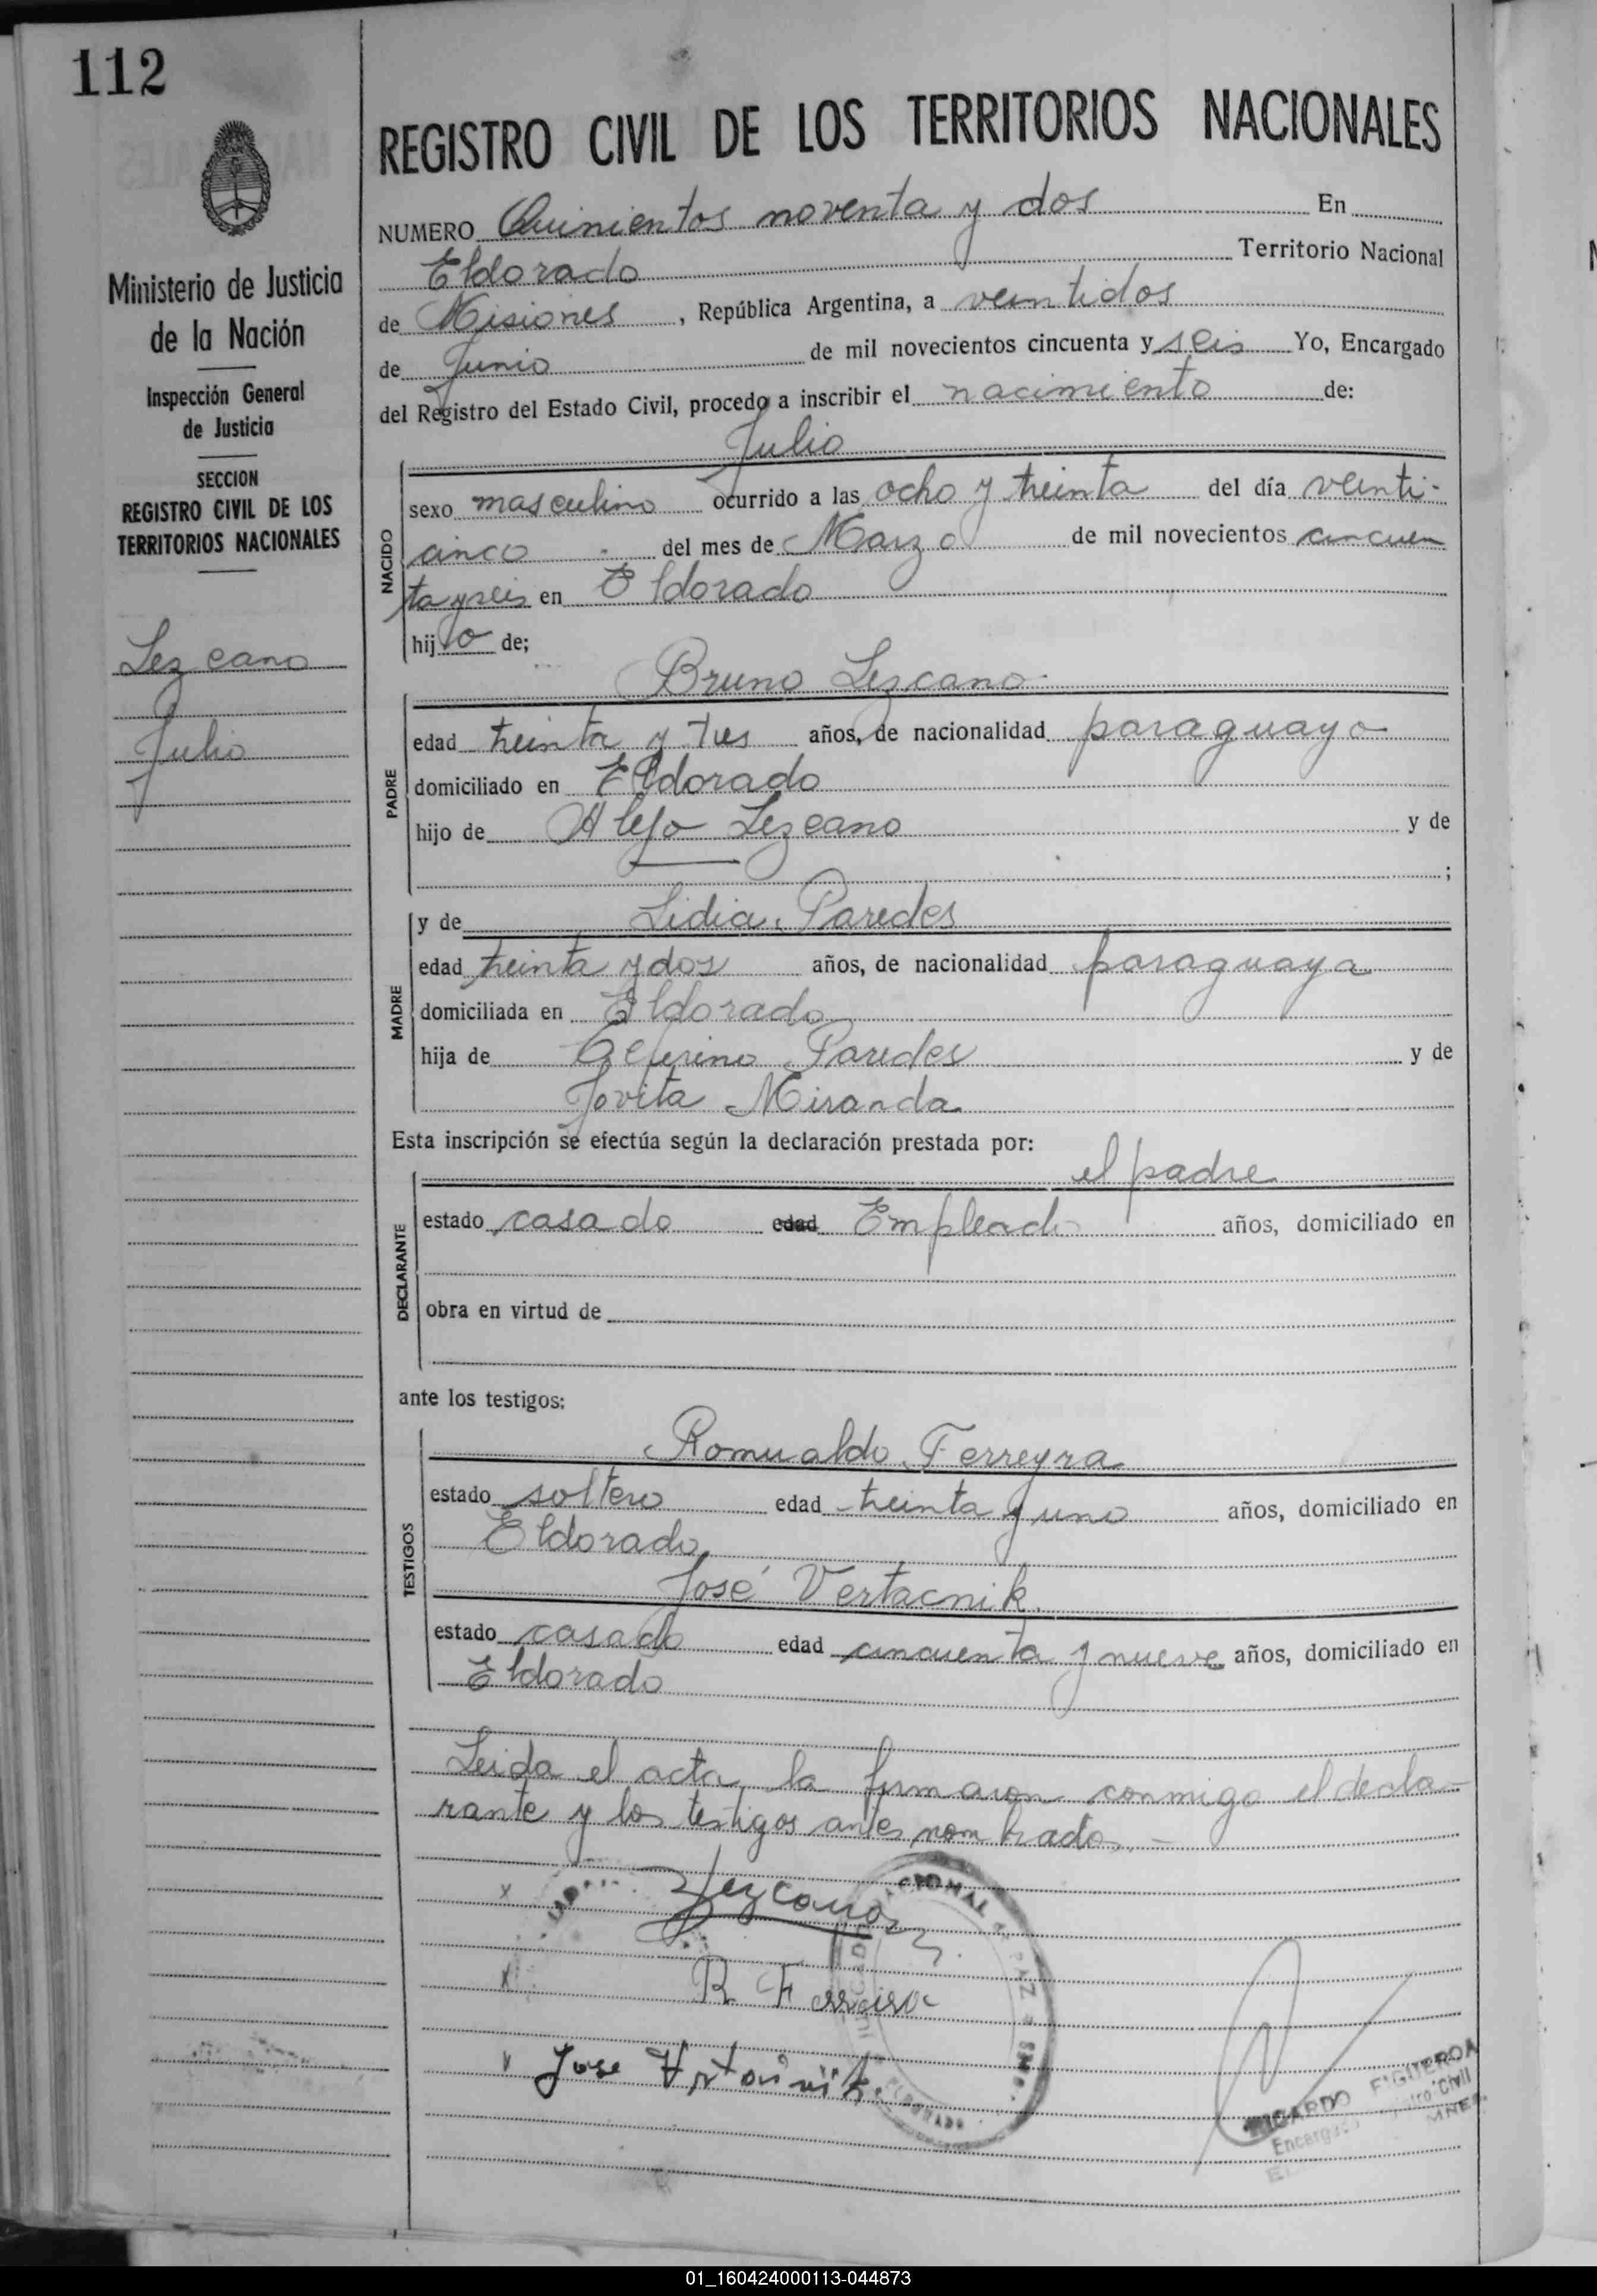 112
REGISTRO CIVIL DE LOS TERRITORIOS NACIONALES
Ministerio de Justicia
de la Nación
Inspección General
de Justicia
SECCION
REGISTRO CIVIL DE LOS
TERRITORIOS NACIONALES
Lezcano
Julio
NUMERO Quinientos noventa y dos En
Eldorado Territorio Nacional
de Misiones, República Argentina, a veintidos
de Junio de mil novecientos cincuenta y seis Yo, Encargado
del Registro del Estado Civil, procedo a inscribir el nacimiento de:
Julio
NACIDO
sexo masculino ocurrido a las ocho y treinta del día veinti-
cinco del mes de Marzo de mil novecientos cincuen
ta y seis en Eldorado
hijo de;
Bruno Lezcano
PADRE
edad treinta y tres años, de nacionalidad paraguayo
domiciliado en Eldorado
hijo de Alejo Lezcano y de
;
MADRE
y de Lidia Paredes
edad treinta y dos años, de nacionalidad paraguaya
domiciliada en Eldorado
hija de Ceferino Paredes y de
Jovita Miranda
Esta inscripción se efectúa según la declaración prestada por:
el padre
DECLARANTE
estado casado edad Empleado años, domiciliado en
obra en virtud de
ante los testigos:
TESTIGOS
Romualdo Ferreyra
estado soltero edad treinta y uno años, domiciliado en
Eldorado
José Vertacnik
estado casado edad cincuenta y nueve años, domiciliado en
Eldorado
Leida el acta, la firmaron conmigo el decla-
rante y los testigos antes nombrados.-
x Lezcano
x R Ferreira
Jose
RICARDO FIGUEROA
01_160424000113-044873